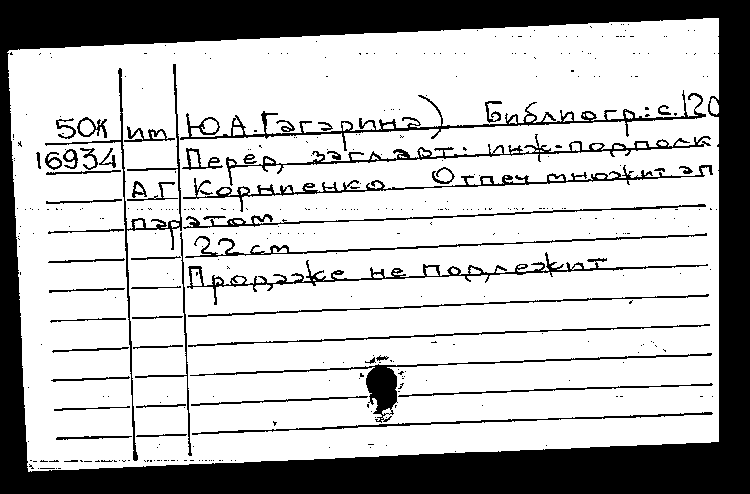 50к им. Ю.А. Гагарина) Библиогр.: с. 120
16934 Перед загл. авт.: инж.-подполк.
А.Г. Корниенко. Отпеч множит ап
паратом.
22 см
Продаже не подлежит